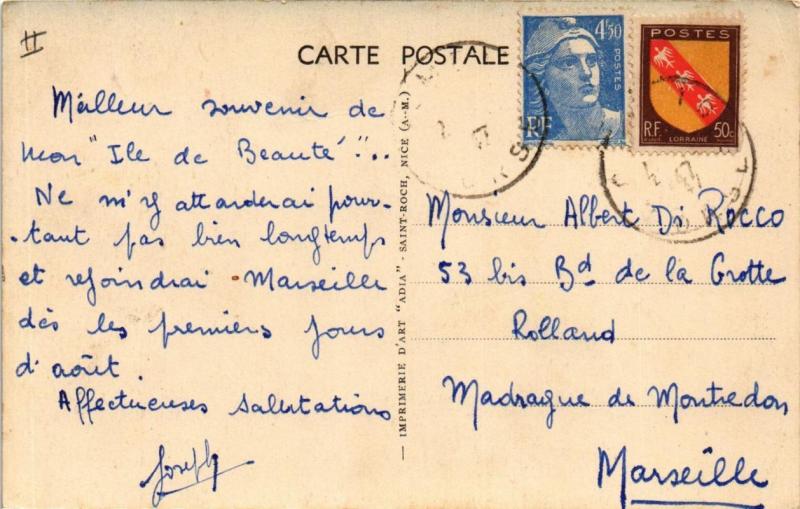 CARTE POSTALE
Meilleur souvenir de
mon "Ile de Beauté"...
Ne m'y attarderai pour-
-tant pas bien longtemps
et rejoindrai Marseille
dès les premiers jours
d'août.
Affectueuses salutations
Joseph
— IMPRIMERIE D'ART "ADIA" - SAINT-ROCH, NICE (A.-M.) —
4f50
POSTES
RF
POSTES
RF
50c
LORRAINE
Monsieur Albert Di Rocco
53 bis Bd de la Grotte
Rolland
Madrague de Montredon
Marseille